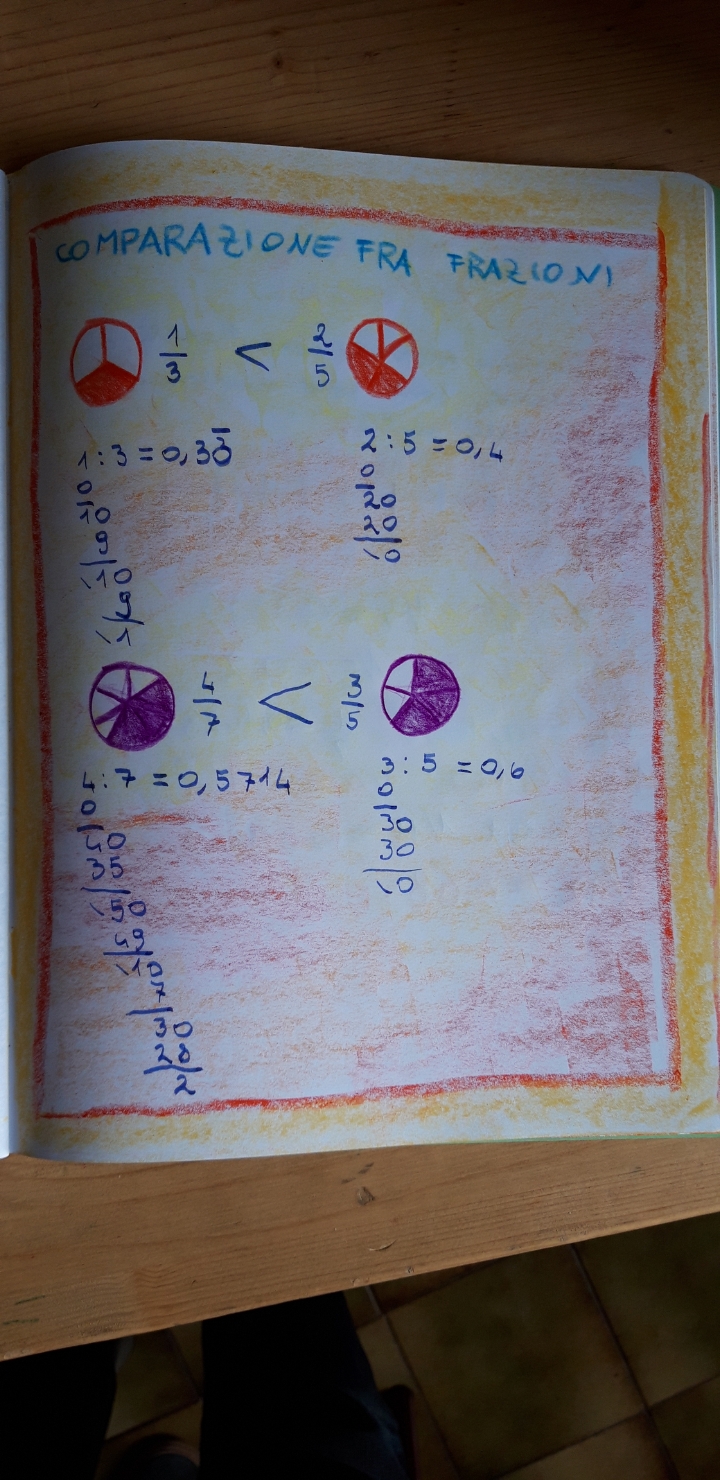 COMPARAZIONE FRA FRAZIONI
1/3 < 2/5
1 : 3 = 0,33̅
0
10
9
10
9
1
2 : 5 = 0,4
0
20
20
0
4/7 < 3/5
4 : 7 = 0,5714
0
40
35
50
49
10
7
30
28
2
3 : 5 = 0,6
0
30
30
0